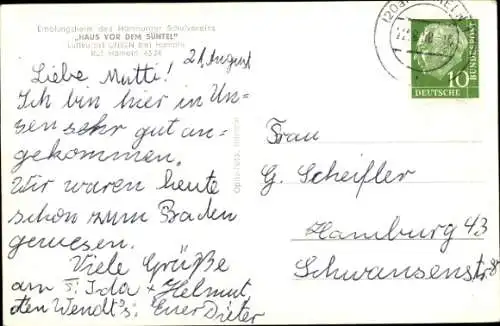 Erholungsheim des Hannoverer Schulvereins
„HAUS VOR DEM SÜNTEL"
Luftkurort UNSEN bei Hameln
Ruf: Hameln 6534
21. August
Liebe Mutti!
Ich bin hier in Un-
sen sehr gut an-
gekommen.
Wir waren heute
schon zum Baden
gewesen.
Viele Grüße
am Ida + Helmut,
den Wendt's. Euer Dieter
10
DEUTSCHE
BUNDESPOST
Frau
G. Scheifler
Hamburg 43
Schwansenstr